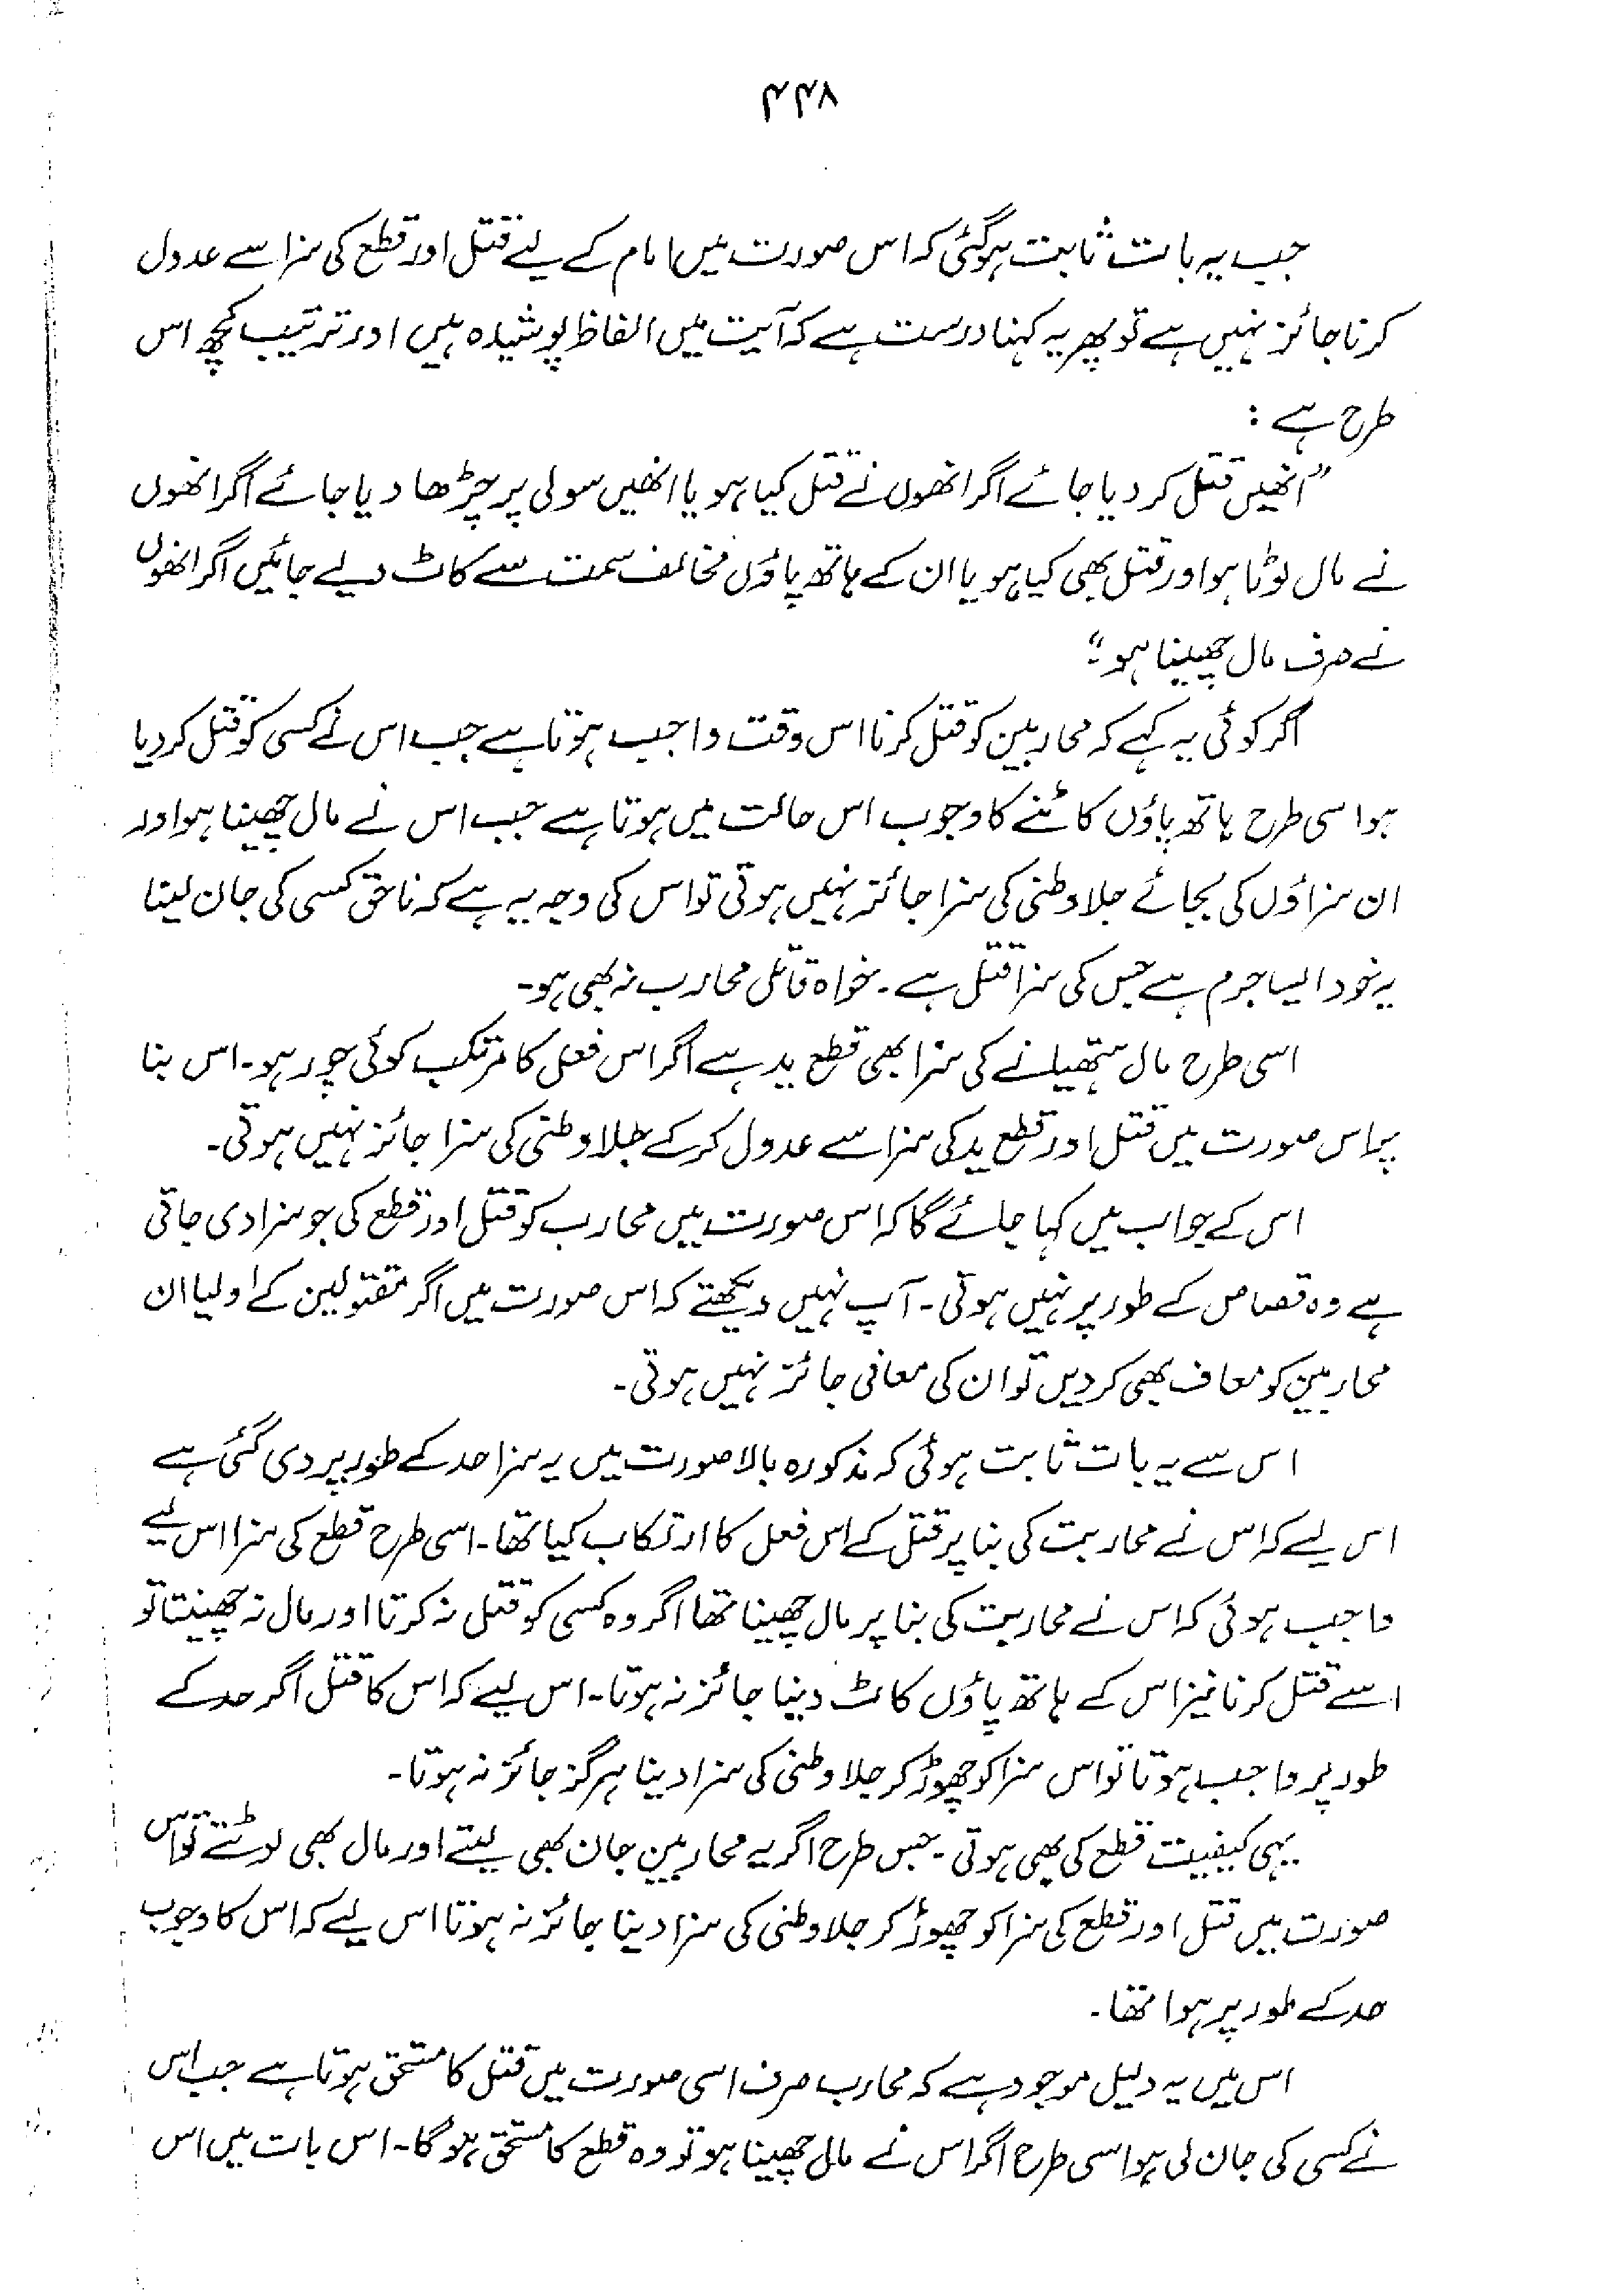 ۴۴۸
جب یہ بات ثابت ہوگئی کہ اس صورت میں امام کے لیے قتل اور قطع کی سزا سے عدول
کرنا جائز نہیں ہے تو پھر یہ کہنا درست ہے کہ آیت میں الفاظ پوشیدہ ہیں اور ترتیب کچھ اس
طرح ہے :
”انھیں قتل کر دیا جائے اگر انھوں نے قتل کیا ہو یا انھیں سولی پر چڑھا دیا جائے اگر انھوں
نے مال لوٹا ہو اور قتل بھی کیا ہو یا ان کے ہاتھ پاؤں مخالف سمت سے کاٹ دیے جائیں اگر انھوں
نے صرف مال چھینا ہو“
اگر کوئی یہ کہے کہ محاربین کو قتل کرنا اس وقت واجب ہوتا ہے جب اس نے کسی کو قتل کر دیا
ہو اسی طرح ہاتھ پاؤں کاٹنے کا وجوب اس حالت میں ہوتا ہے جب اس نے مال چھینا ہو اور
ان سزاؤں کی بجائے جلا وطنی کی سزا جائز نہیں ہوتی تو اس کی وجہ یہ ہے کہ ناحق کسی کی جان لینا
یہ خود ایسا جرم ہے جس کی سزا قتل ہے ۔ خواہ قاتل محارب نہ بھی ہو۔
اسی طرح مال ہتھیانے کی سزا بھی قطع ید ہے اگر اس فعل کا مرتکب کوئی چور ہو۔ اس بنا
پر اس صورت میں قتل اور قطع ید کی سزا سے عدول کر کے جلا وطنی کی سزا جائز نہیں ہوتی۔
اس کے جواب میں کہا جائے گا کہ اس صورت میں محارب کو قتل اور قطع کی جو سزا دی جاتی
ہے وہ قصاص کے طور پر نہیں ہوتی۔ آپ نہیں دیکھتے کہ اس صورت میں اگر مقتولین کے اولیا ان
محاربین کو معاف بھی کر دیں تو ان کی معافی جائز نہیں ہوتی۔
اس سے یہ بات ثابت ہوئی کہ مذکورہ بالا صورت میں یہ سزا حد کے طور پر دی گئی ہے
اس لیے کہ اس نے محاربت کی بنا پر قتل کے اس فعل کا ارتکاب کیا تھا۔ اسی طرح قطع کی سزا اس لیے
واجب ہوئی کہ اس نے محاربت کی بنا پر مال چھینا تھا اگر وہ کسی کو قتل نہ کرتا اور مال نہ چھینتا تو
اسے قتل کرنا نیز اس کے ہاتھ پاؤں کاٹ دینا جائز نہ ہوتا۔ اس لیے کہ اس کا قتل اگر حد کے
طور پر واجب ہوتا تو اس سزا کو چھوڑ کر جلا وطنی کی سزا دینا ہرگز جائز نہ ہوتا۔
یہی کیفیت قطع کی بھی ہوتی ۔ جس طرح اگر یہ محاربین جان بھی لیتے اور مال بھی لوٹتے تو اس
صورت میں قتل اور قطع کی سزا کو چھوڑ کر جلا وطنی کی سزا دینا جائز نہ ہوتا اس لیے کہ اس کا وجوب
حد کے طور پر ہوا تھا۔
اس میں یہ دلیل موجود ہے کہ محارب صرف اسی صورت میں قتل کا مستحق ہوتا ہے جب اس
نے کسی کی جان لی ہو اسی طرح اگر اس نے مال چھینا ہو تو وہ قطع کا مستحق ہوگا۔ اس بات میں اس